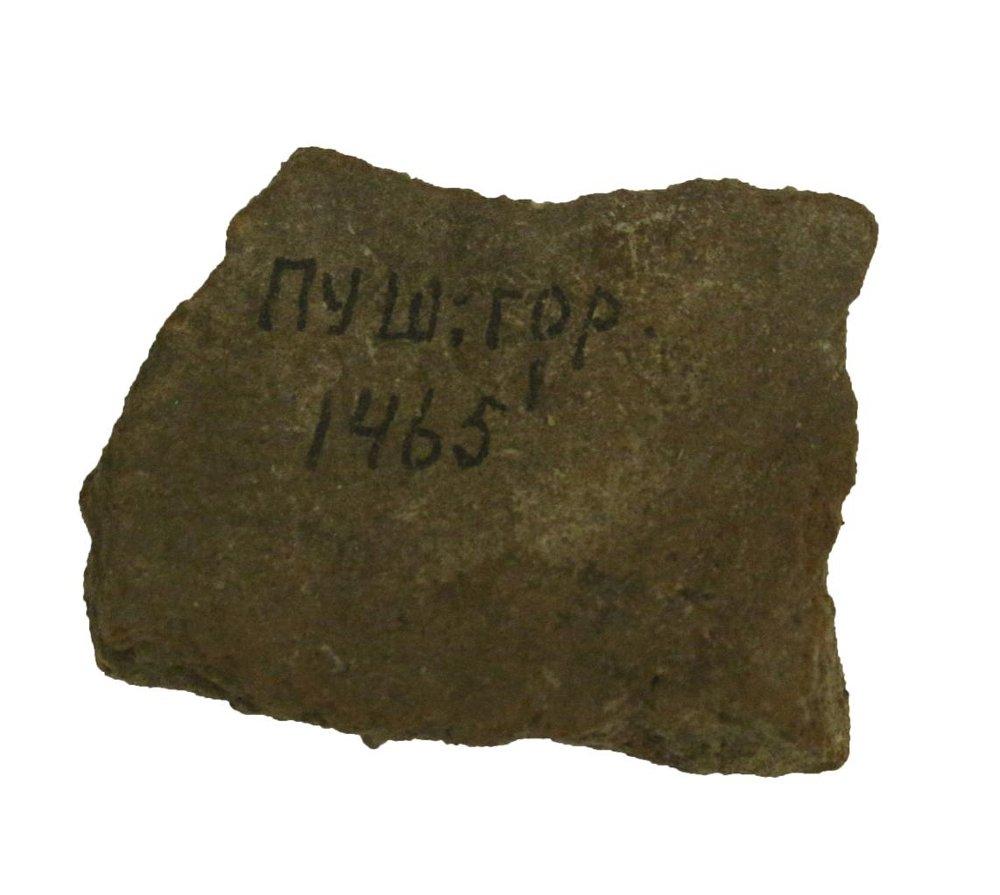 ПУШ: ГОР.
1465